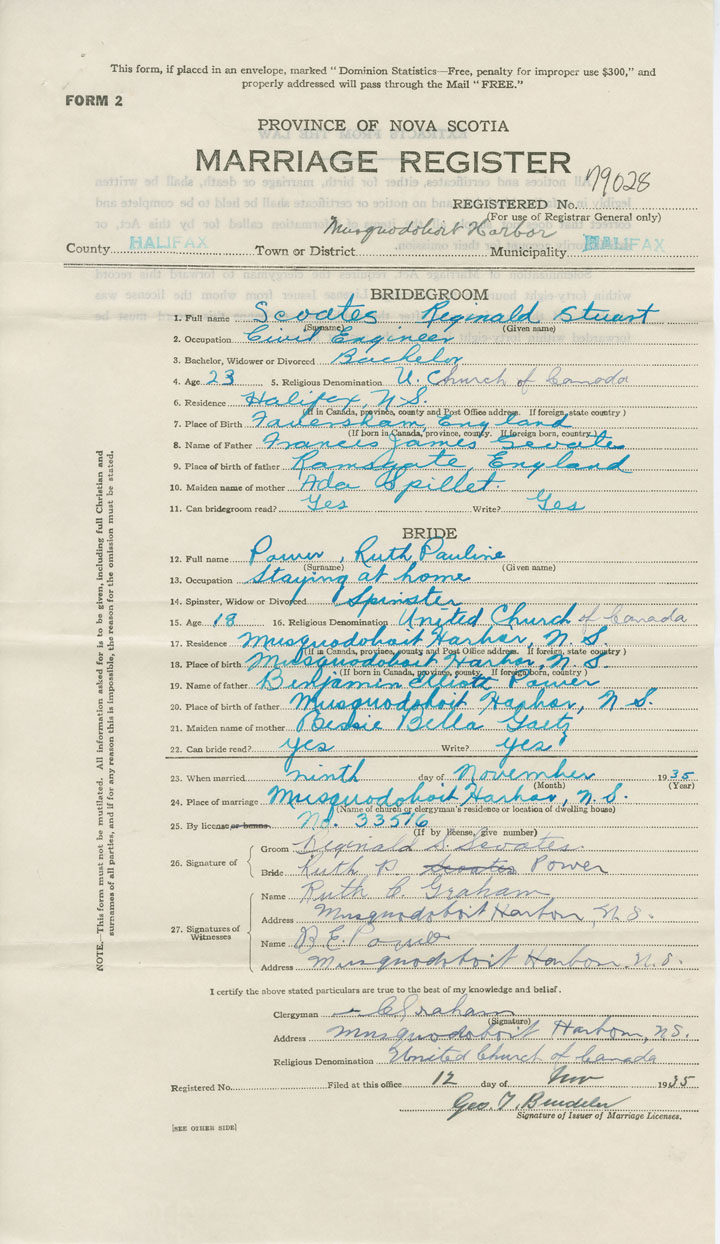 This form, if placed in an envelope, marked "Dominion Statistics—Free, penalty for improper use $300," and
properly addressed will pass through the Mail "FREE."
FORM 2
PROVINCE OF NOVA SCOTIA
MARRIAGE REGISTER
79028
REGISTERED No.
(For use of Registrar General only)
County HALIFAX Town or District Musquodoboit Harbor Municipality HALIFAX
BRIDEGROOM
1. Full name Scoates Reginald Stuart
(Surname) (Given name)
2. Occupation Civil Engineer
3. Bachelor, Widower or Divorced Bachelor
4. Age 23 5. Religious Denomination U. Church of Canada
6. Residence Halifax, N.S.
(If in Canada, province, county and Post Office address. If foreign, state country)
7. Place of Birth Faversham, England
(If born in Canada, province, county. If foreign born, country)
8. Name of Father Francis James Scoates
9. Place of birth of father Ramsgate, England
10. Maiden name of mother Ada Spillet.
11. Can bridegroom read? Yes Write? Yes
BRIDE
12. Full name Power, Ruth Pauline
(Surname) (Given name)
13. Occupation Staying at home
14. Spinster, Widow or Divorced Spinster
15. Age 18 16. Religious Denomination United Church of Canada
17. Residence Musquodoboit Harbor, N.S.
(If in Canada, province, county and Post Office address. If foreign, state country)
18. Place of birth Musquodoboit Harbor, N.S.
(If born in Canada, province, county. If foreign born, country)
19. Name of father Benjamin Elliott Power
20. Place of birth of father Musquodoboit Harbor, N S.
21. Maiden name of mother Bessie Bella Gaetz
22. Can bride read? yes Write? yes
23. When married ninth day of November 1935
(Month) (Year)
24. Place of marriage Musquodoboit Harbor, N.S.
(Name of church or clergyman's residence or location of dwelling house)
25. By license or banns No. 33516
(If by license, give number)
26. Signature of
Groom Reginald S. Scoates.
Bride Ruth P. Scoates Power
27. Signatures of Witnesses
Name Ruth C. Graham
Address Musquodoboit Harbour, N.S.
Name B.E. Power
Address Musquodoboit Harbour. N.S.
I certify the above stated particulars are true to the best of my knowledge and belief.
Clergyman C Graham
(Signature)
Address Musquodoboit Harbour, N.S.
Religious Denomination United Church of Canada
Registered No. Filed at this office 12 day of Nov 1935
Geo. T.
Signature of Issuer of Marriage Licenses.
[SEE OTHER SIDE]
NOTE.—This form must not be mutilated. All information asked for is to be given, including full Christian and
surnames of all parties, and if for any reason this is impossible, the reason for the omission must be stated.